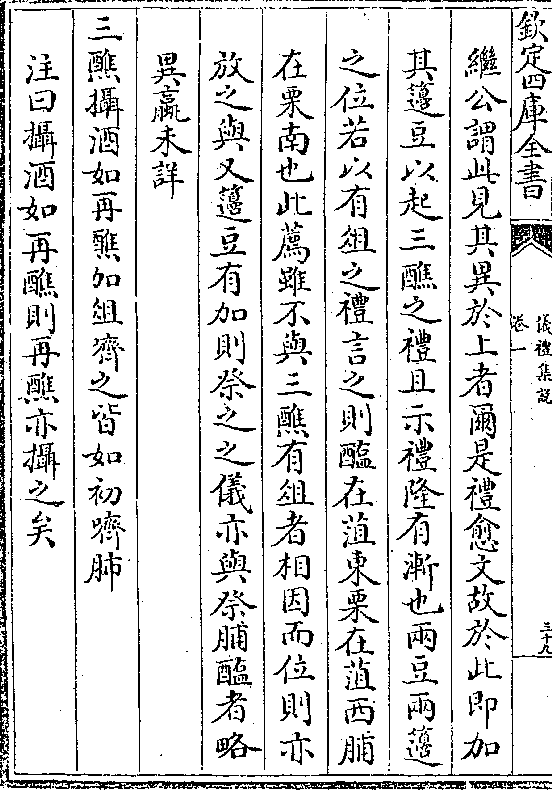 欽定四庫全書
儀禮集說
卷一
三十九
繼公謂此見其異於上者爾是禮愈文故於此即加
其籩豆以起三醮之禮且示禮隆有漸也兩豆兩籩
之位若以有俎之禮言之則醢在菹東栗在菹西脯
在栗南也此薦雖不與三醮有俎者相因而位則亦
放之與又籩豆有加則祭之之儀亦與祭脯醢者略
異蠃未詳
三醮攝酒如再醮加俎嚌之皆如初嚌肺
注曰攝酒如再醮則再醮亦攝之矣